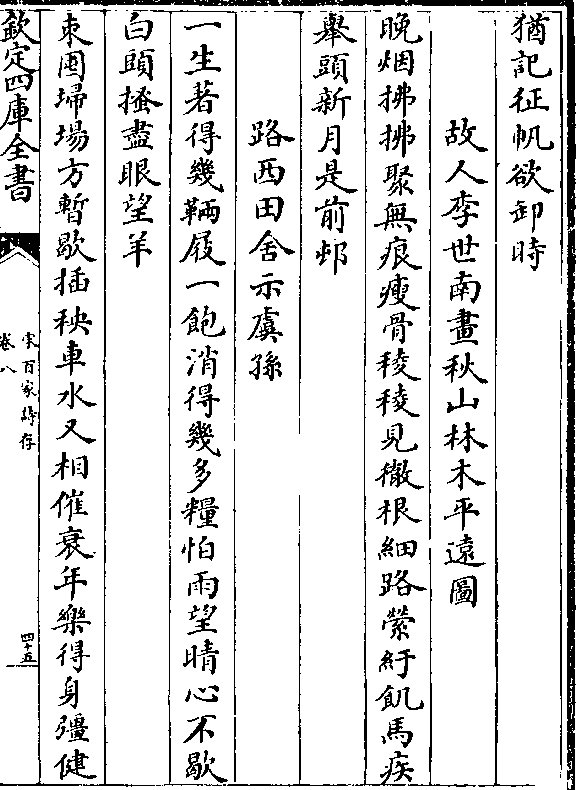 猶記征帆欲卸時
故人李世南畫秋山林木平遠圖
晚烟拂拂聚無痕瘦骨稜稜見徹根細路縈紆飢馬疾
舉頭新月是前邨
路西田舍示虞孫
一生著得幾輛屐一飽消得幾多糧怕雨望晴心不歇
白頭搔盡眼望羊
東囷埽場方暫歇插秧車水又相催衰年樂得身彊健
欽定四庫全書
宋百家詩存
卷八
四十五